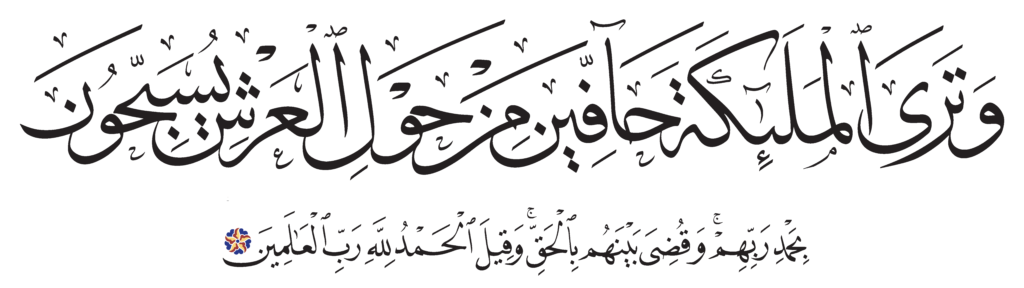 وَتَرَى ٱلْمَلَٰٓئِكَةَ حَآفِّينَ مِنْ حَوْلِ ٱلْعَرْشِ يُسَبِّحُونَ
بِحَمْدِ رَبِّهِمْ ۖ وَقُضِىَ بَيْنَهُم بِٱلْحَقِّ ۚ وَقِيلَ ٱلْحَمْدُ لِلَّهِ رَبِّ ٱلْعَٰلَمِينَ